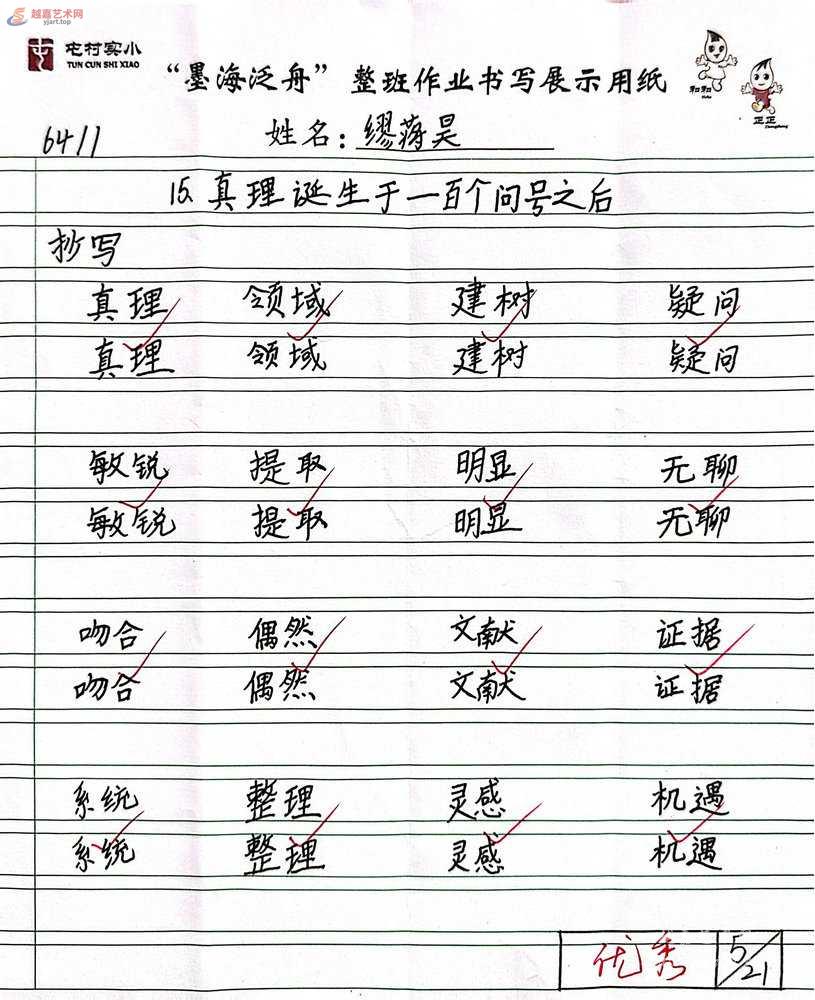 越嘉艺术网
yjart.top
屯村实小
TUN CUN SHI XIAO
“墨海泛舟”整班作业书写展示用纸
和和
正正
6411
姓名：缪蒋昊
15.真理诞生于一百个问号之后
抄写
真理 领域 建树 疑问
真理 领域 建树 疑问
敏锐 提取 明显 无聊
敏锐 提取 明显 无聊
吻合 偶然 文献 证据
吻合 偶然 文献 证据
系统 整理 灵感 机遇
系统 整理 灵感 机遇
优秀 5/21